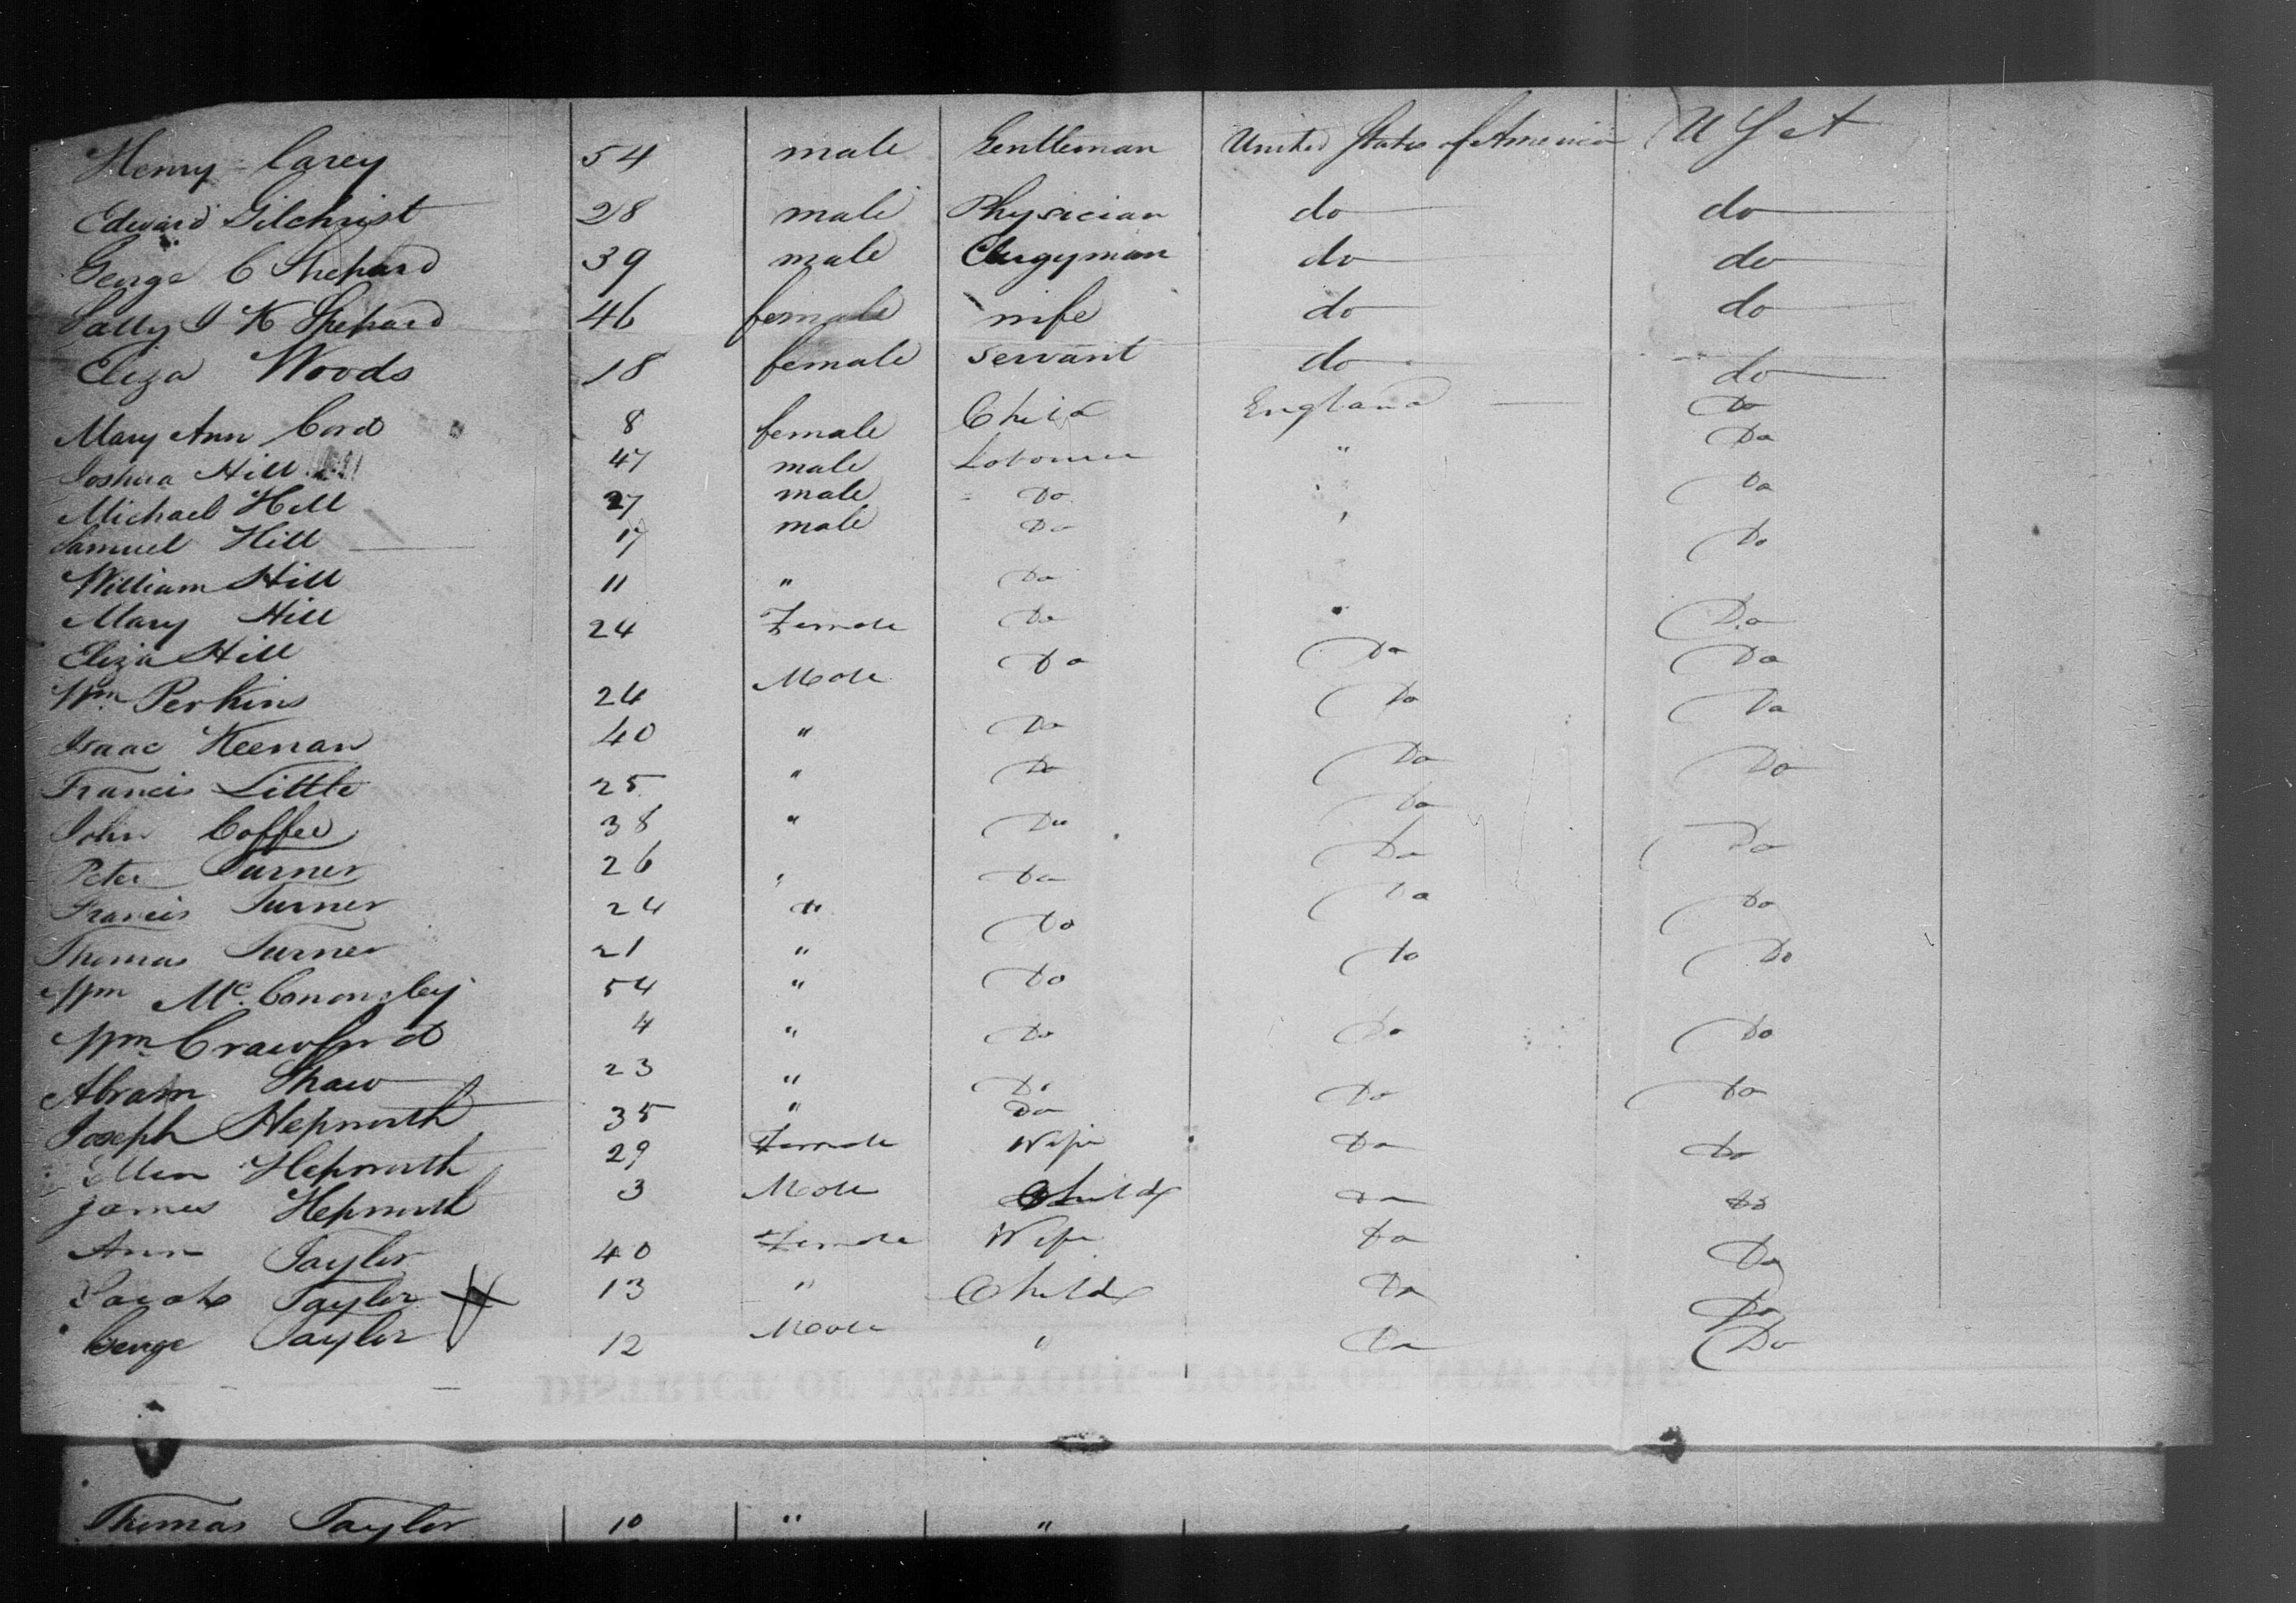 Henry Carey 54 male Gentleman United States of America U S A
Edward Gilchrist 28 male Physician do do
George C Shepard 39 male Clergyman do do
Sally I K Shepard 46 female wife do do
Eliza Woods 18 female servant do do
Mary Ann Cord 8 female Child England Do
Joshua Hill 47 male Labourer " Do
Michael Hill 27 male Do " Do
Samuel Hill 17 male Do " Do
William Hill 11 " Do
Mary Hill 24 Female Do " Do
Eliza Hill Do Do Do
Wm Perkins 24 Male Do Do
Isaac Keenan 40 " Do Do Do
Francis Little 25 " Do Do
John Coffee 38 " Do Do Do
Peter Turner 26 " Do Do
Francis Turner 24 " Do Do Do
Thomas Turner 21 " Do Do
Wm Mc. 54 " Do
Wm Crawford 4 " Do Do Do
Abram Shaw 23 " Do Do Do
Joseph Hepworth 35 " Do
Ellen Hepworth 29 Female Wife Do Do
James Hepworth 3 Male Child Do Do
Ann Taylor 40 Female Wife Do Do
Sarah Taylor 13 " Child Do Do
George Taylor 12 Male " Do Do
DISTRICT OF NEW-YORK - PORT OF NEW-YORK
Thomas Taylor 10 " "